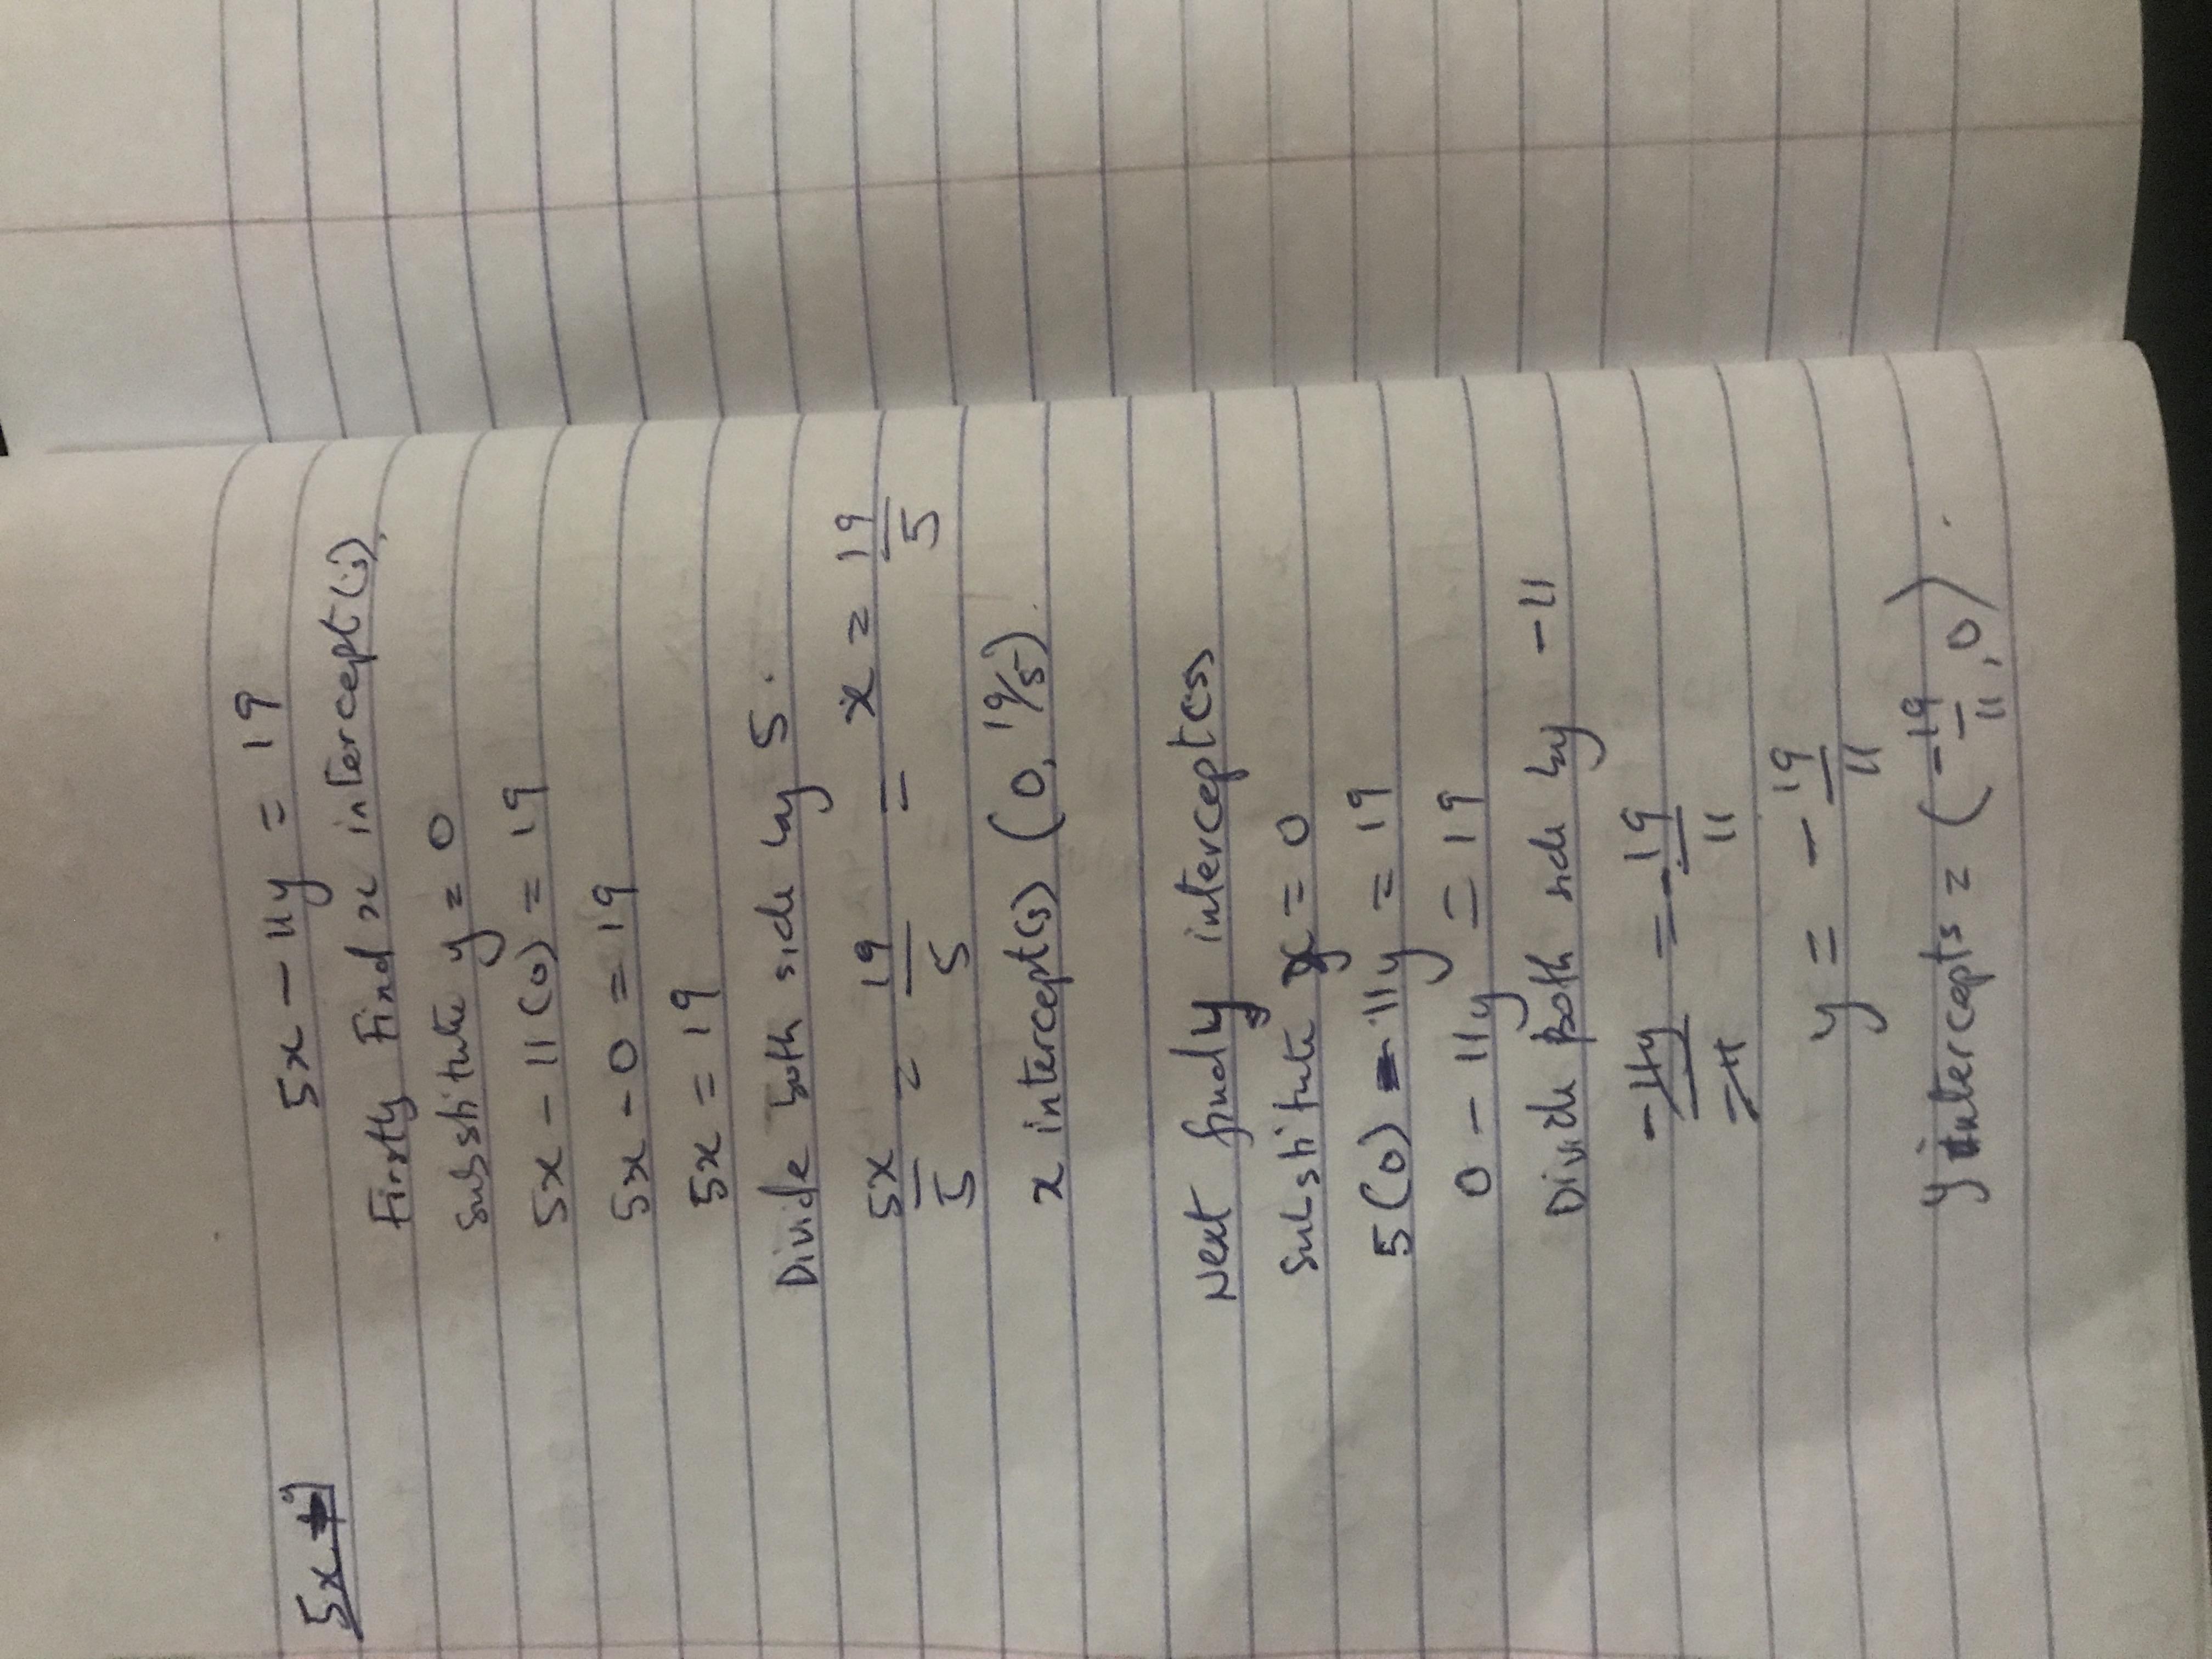 5x - 11y = 19
Firstly Find x intercept(s),
Substitute y = 0
5x - 11(0) = 19
5x - 0 = 19
5x = 19
Divide both side by 5.
5x/5 = 19/5 = x = 19/5
x intercept(s) (0, 19/5).
Next find y intercept(s)
Substitute x = 0
5(0) - 11y = 19
0 - 11y = 19
Divide Both side by -11
-11y/-11 = -19/11
y = -19/11
y intercepts = (-19/11, 0).